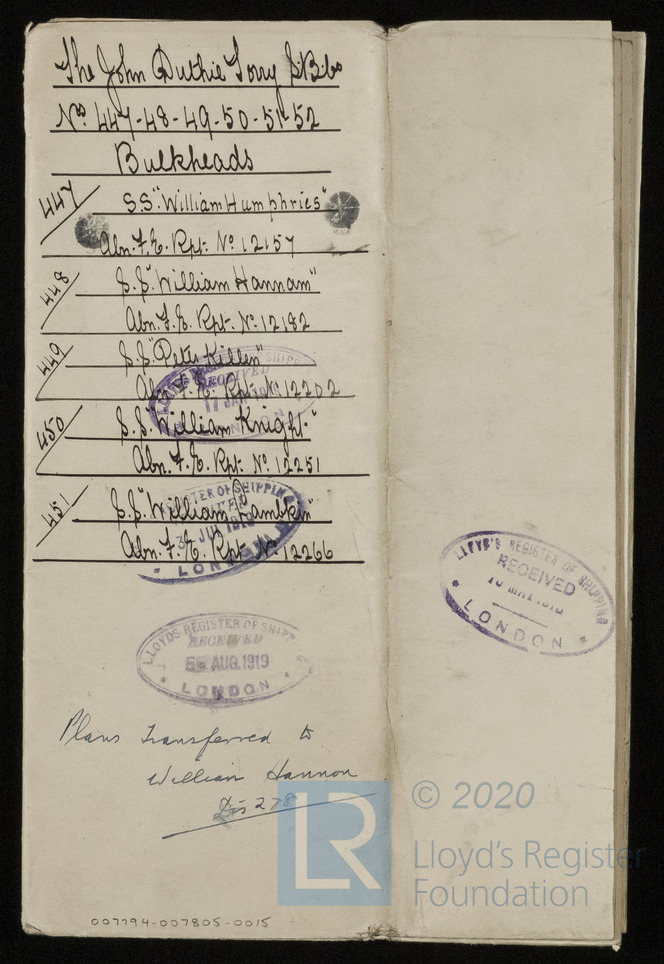 The John Duthie Torry S.B. Co
Nos 447-48-49-50-51-52
Bulkheads
447
S.S. "William Humphries"
Abn. F.E. Rpt. No. 12157
448
S.S. "William Hannam"
Abn. F.E. Rpt. No. 12182
449
S.S. "Peter Killen"
Abn. F.E. Rpt. No. 12202
LLOYD'S REGISTER OF SHIPPING
RECEIVED
17 JAN
LONDON
450
S.S. "William Knight"
Abn. F.E. Rpt. No. 12251
451
S.S. "William Lambkin"
Abn. F.E. Rpt. No. 12266
REGISTER OF SHIPPING
JUL 1919
LONDON
LLOYD'S REGISTER OF SHIPPING
RECEIVED
LONDON
LLOYDS REGISTER OF SHIPP
RECEIVED
5 AUG. 1919
LONDON
Plans transferred to
William Hannon
Dis 278
007794-007805-0015
LR
© 2020
Lloyd's Register
Foundation